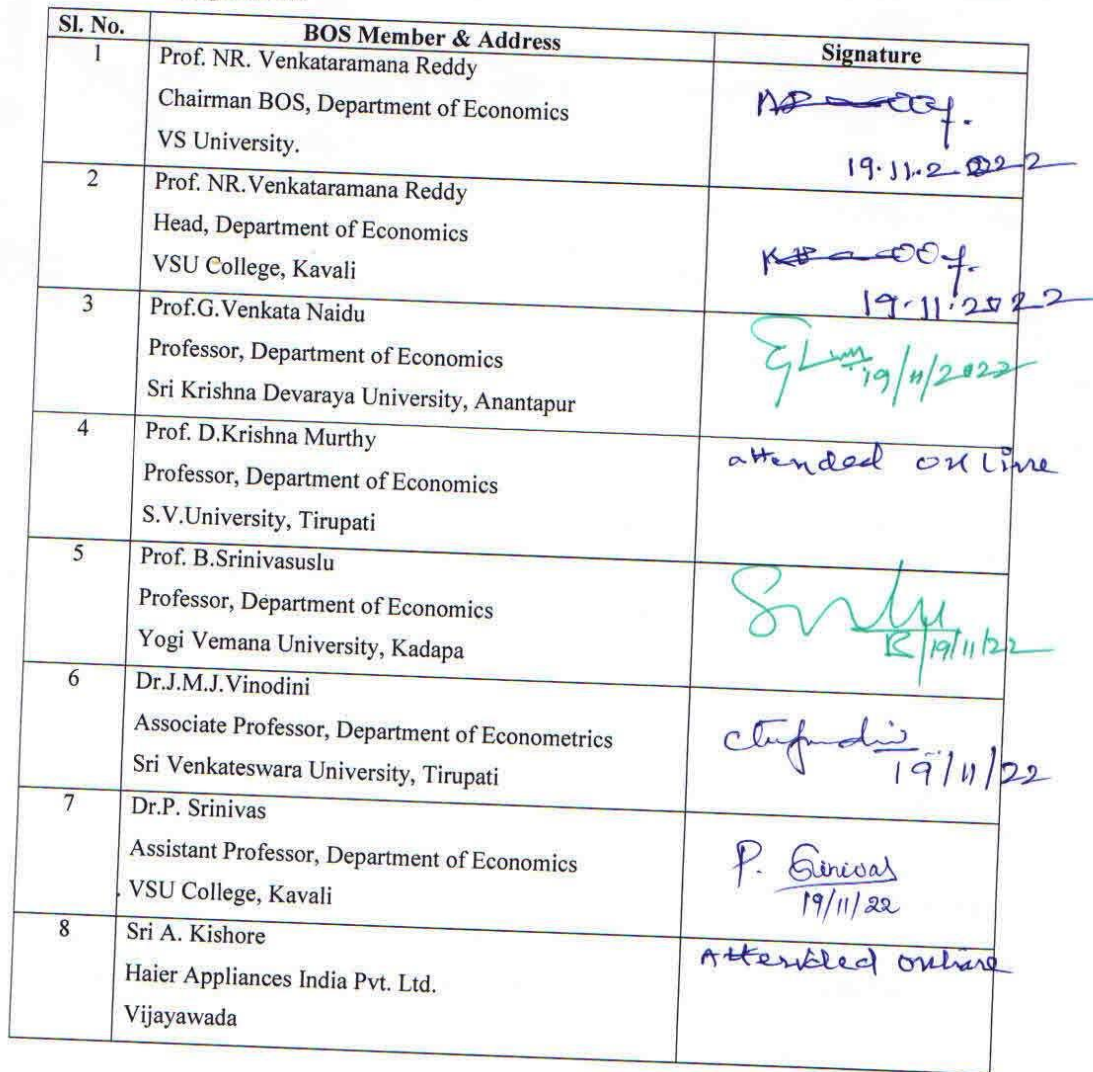 Sl. No. BOS Member & Address Signature
1 Prof. NR. Venkataramana Reddy
Chairman BOS, Department of Economics
VS University.
19.11.2022
2 Prof. NR.Venkataramana Reddy
Head, Department of Economics
VSU College, Kavali
19.11.2022
3 Prof.G.Venkata Naidu
Professor, Department of Economics
19/11/2022
Sri Krishna Devaraya University, Anantapur
4 Prof. D.Krishna Murthy
attended online
Professor, Department of Economics
S.V.University, Tirupati
5 Prof. B.Srinivasuslu
Professor, Department of Economics
Yogi Vemana University, Kadapa
19/11/22
6 Dr.J.M.J.Vinodini
Associate Professor, Department of Econometrics
Sri Venkateswara University, Tirupati
19/11/22
7 Dr.P. Srinivas
Assistant Professor, Department of Economics
P. Srinivas
. VSU College, Kavali
19/11/22
8 Sri A. Kishore
Attended online
Haier Appliances India Pvt. Ltd.
Vijayawada